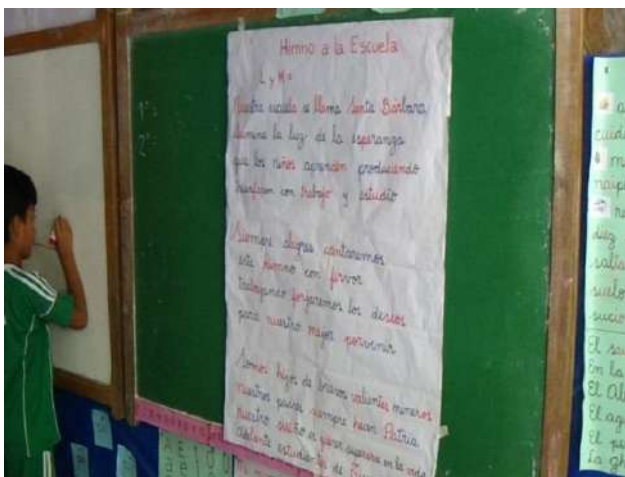 Himno a la Escuela
L y M =
Nuestra escuela se llama Santa Bárbara
ilumine la luz de la esperanza
que los niños aprenden produciendo
triunfaron con trabajo y estudio
Siempre alegres cantaremos
este himno con fervor
trabajando forjaremos los deseos
para nuestro mejor porvenir
Somos hijos de bravos valientes mineros
nuestros padres siempre hacen Patria
nuestro sueño es querer superarse en la vida
adelante estudiantes de
1º
2º
a
cuid
m
naup
diez
salta
suelo
sucio
El
En la
El
El ag
El pe
La